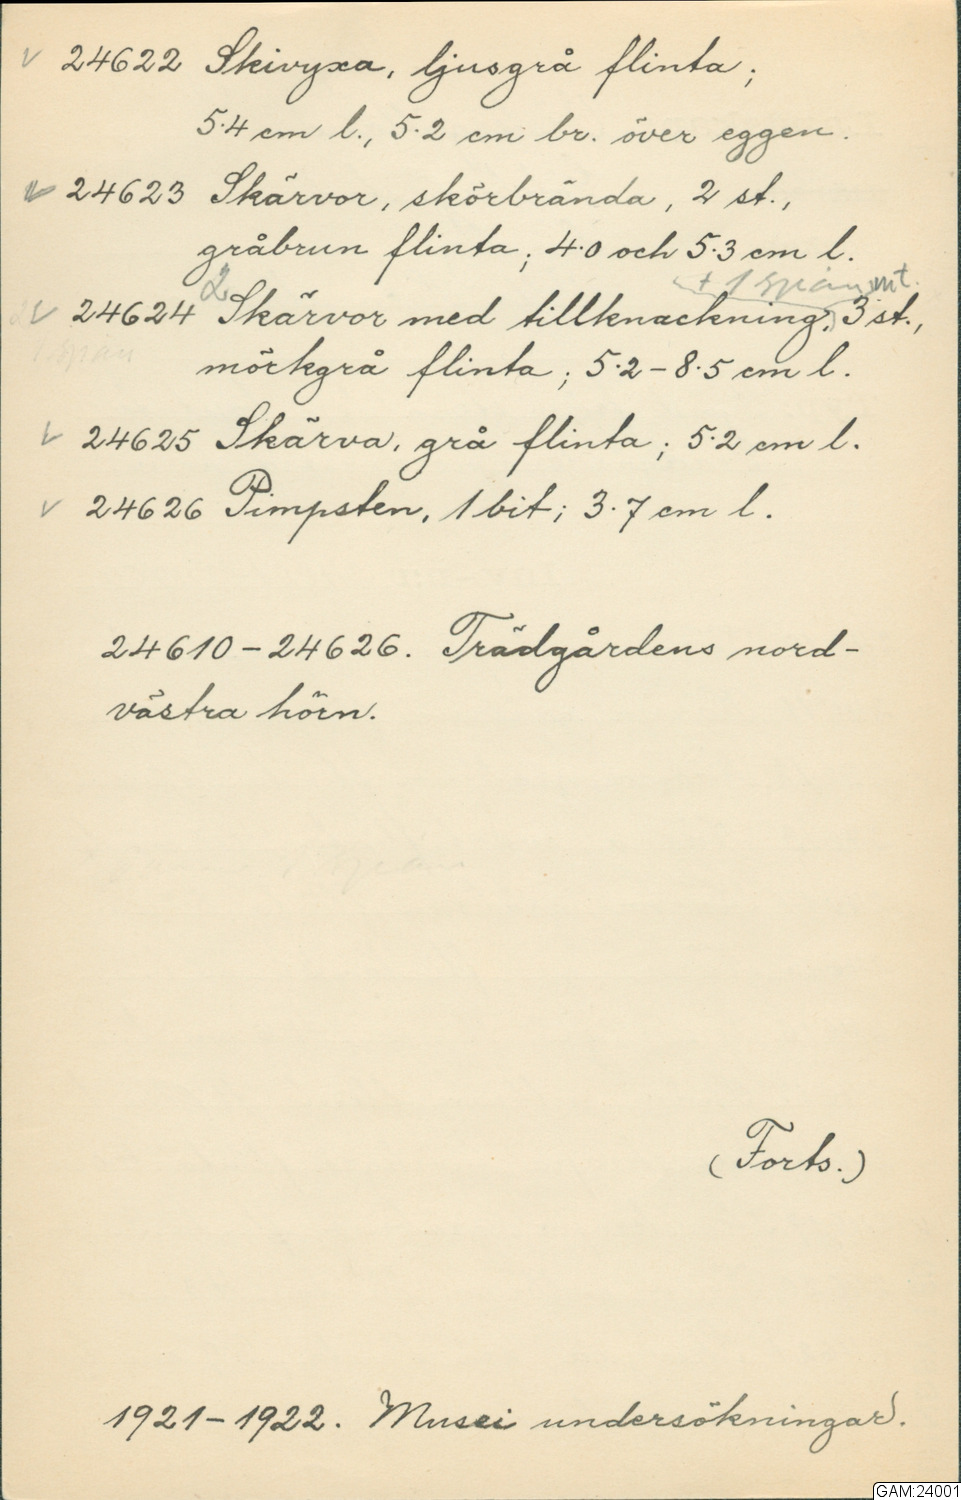 v 24622 Skivyxa, ljusgrå flinta;
5.4 cm l., 5.2 cm br. över eggen.
v 24623 Skärvor, skörbrända, 2 st.,
gråbrun flinta; 4.0 och 5.3 cm l.
+ 1 spån
v 24624 2 Skärvor med tillknackning, 3 st.,
1 spån
mörkgrå flinta; 5.2-8.5 cm l.
v 24625 Skärva, grå flinta; 5.2 cm l.
v 24626 Pimpsten, 1 bit; 3.7 cm l.
24610-24626. Trädgårdens nord-
västra hörn.
(Forts.)
1921-1922. Musei undersökningar.
GAM:24001